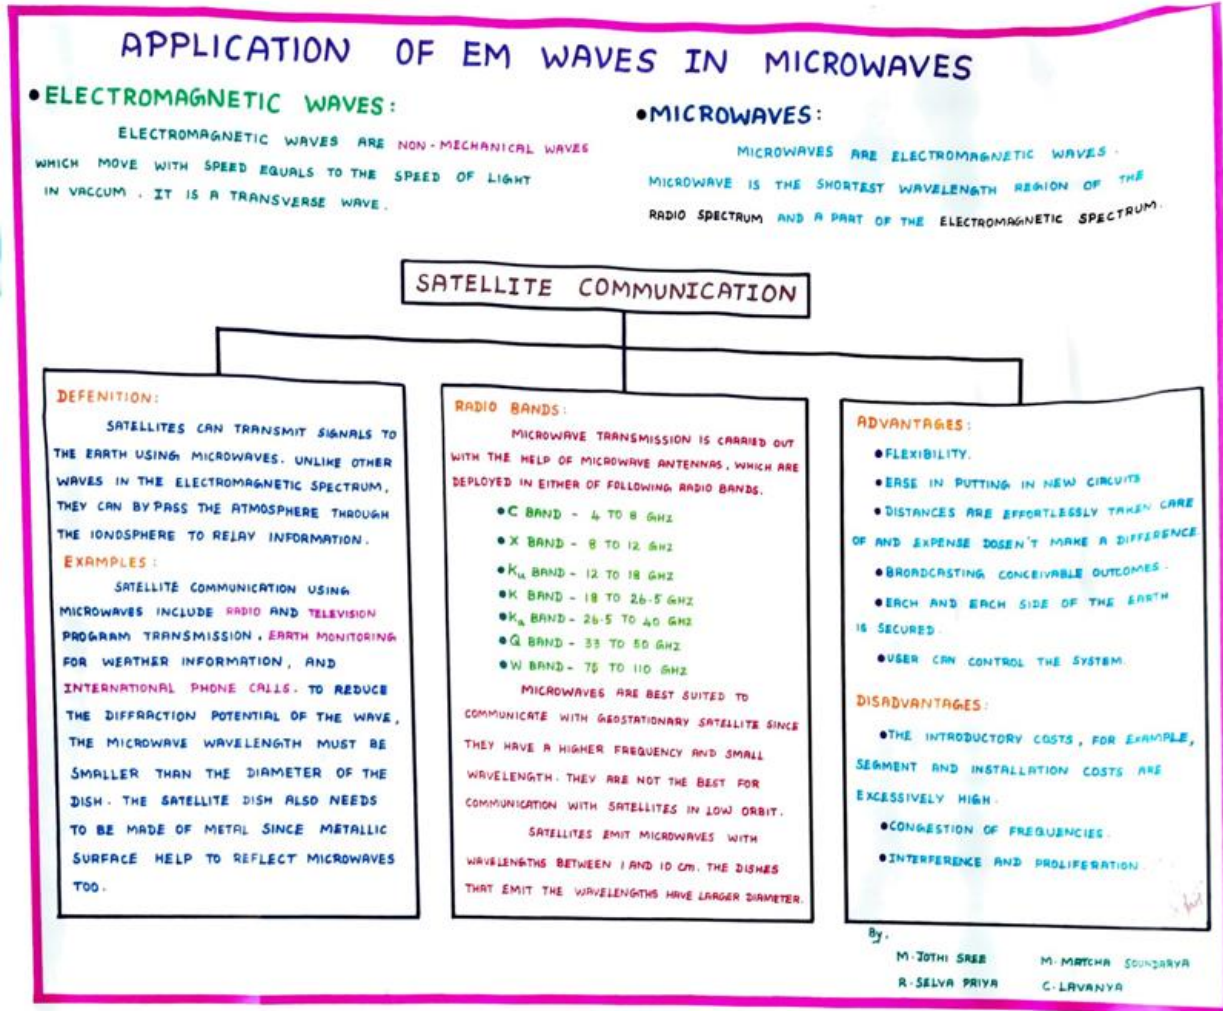 APPLICATION OF EM WAVES IN MICROWAVES
•ELECTROMAGNETIC WAVES:
ELECTROMAGNETIC WAVES ARE NON-MECHANICAL WAVES
WHICH MOVE WITH SPEED EQUALS TO THE SPEED OF LIGHT
IN VACCUM. IT IS A TRANSVERSE WAVE.
•MICROWAVES:
MICROWAVES ARE ELECTROMAGNETIC WAVES.
MICROWAVE IS THE SHORTEST WAVELENGTH REGION OF THE
RADIO SPECTRUM AND A PART OF THE ELECTROMAGNETIC SPECTRUM.
SATELLITE COMMUNICATION
DEFENITION:
SATELLITES CAN TRANSMIT SIGNALS TO
THE EARTH USING MICROWAVES. UNLIKE OTHER
WAVES IN THE ELECTROMAGNETIC SPECTRUM,
THEY CAN BY PASS THE ATMOSPHERE THROUGH
THE IONOSPHERE TO RELAY INFORMATION.
EXAMPLES:
SATELLITE COMMUNICATION USING
MICROWAVES INCLUDE RADIO AND TELEVISION
PROGRAM TRANSMISSION, EARTH MONITORING
FOR WEATHER INFORMATION, AND
INTERNATIONAL PHONE CALLS. TO REDUCE
THE DIFFRACTION POTENTIAL OF THE WAVE,
THE MICROWAVE WAVELENGTH MUST BE
SMALLER THAN THE DIAMETER OF THE
DISH. THE SATELLITE DISH ALSO NEEDS
TO BE MADE OF METAL SINCE METALLIC
SURFACE HELP TO REFLECT MICROWAVES
TOO.
RADIO BANDS:
MICROWAVE TRANSMISSION IS CARRIED OUT
WITH THE HELP OF MICROWAVE ANTENNAS, WHICH ARE
DEPLOYED IN EITHER OF FOLLOWING RADIO BANDS.
•C BAND - 4 TO 8 GHZ
•X BAND - 8 TO 12 GHZ
•Ku BAND - 12 TO 18 GHZ
•K BAND - 18 TO 26.5 GHZ
•Ka BAND - 26.5 TO 40 GHZ
•Q BAND - 33 TO 50 GHZ
•W BAND - 75 TO 110 GHZ
MICROWAVES ARE BEST SUITED TO
COMMUNICATE WITH GEOSTATIONARY SATELLITE SINCE
THEY HAVE A HIGHER FREQUENCY AND SMALL
WAVELENGTH. THEY ARE NOT THE BEST FOR
COMMUNICATION WITH SATELLITES IN LOW ORBIT.
SATELLITES EMIT MICROWAVES WITH
WAVELENGTHS BETWEEN 1 AND 10 cm. THE DISHES
THAT EMIT THE WAVELENGTHS HAVE LARGER DIAMETER.
ADVANTAGES:
•FLEXIBILITY.
•EASE IN PUTTING IN NEW CIRCUITS
•DISTANCES ARE EFFORTLESSLY TAKEN CARE
OF AND EXPENSE DOSEN'T MAKE A DIFFERENCE
•BROADCASTING CONCEIVABLE OUTCOMES.
•EACH AND EACH SIDE OF THE EARTH
IS SECURED.
•USER CAN CONTROL THE SYSTEM.
DISADVANTAGES:
•THE INTRODUCTORY COSTS, FOR EXAMPLE,
SEGMENT AND INSTALLATION COSTS ARE
EXCESSIVELY HIGH.
•CONGESTION OF FREQUENCIES.
•INTERFERENCE AND PROLIFERATION.
By,
M.JOTHI SREE M.MATCHA SOUNDARYA
R.SELVA PRIYA C.LAVANYA